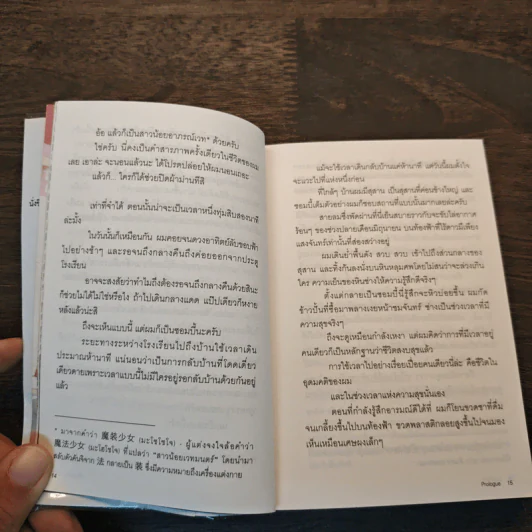 อ้อ แล้วก็เป็นสาวน้อยอาภรณ์เวท* ด้วยครับ
ใช่ครับ นี่คงเป็นคำสารภาพครั้งเดียวในชีวิตของผม
เลย เอาล่ะ จะนอนแล้วนะ ได้โปรดปล่อยให้ผมนอนเถอะ
แล้วก็... ใครก็ได้ช่วยปิดผ้าม่านทีสิ
เท่าที่จำได้ ตอนนั้นน่าจะเป็นเวลาหนึ่งทุ่มสิบสองนาที
ล่ะมั้ง
ในวันนั้นก็เหมือนกัน ผมคอยจนดวงอาทิตย์ลับขอบฟ้า
ไปอย่างช้าๆ และรอจนถึงกลางคืนถึงค่อยออกจากประตู
โรงเรียน
อาจจะสงสัยว่าทำไมถึงต้องรอจนถึงกลางคืนด้วยสินะ
ก็ช่วยไม่ได้ไม่ใช่หรือไง ถ้าไปเดินกลางแดด แป๊ปเดียวก็หงาย
หลังแล้วน่ะสิ
ถึงจะเห็นแบบนี้ แต่ผมก็เป็นซอมบี้นะครับ
ระยะทางระหว่างโรงเรียนไปถึงบ้านใช้เวลาเดิน
ประมาณห้านาที แน่นอนว่าเป็นการกลับบ้านที่โดดเดี่ยว
เดียวดายเพราะเวลาแบบนี้ไม่มีใครอยู่รอกลับบ้านด้วยกันอยู่
แล้ว
* มาจากคำว่า 魔装少女 (มะโซโชโจ) - ผู้แต่งจงใจล้อคำว่า
魔法少女 (มะโฮโชโจ) ที่แปลว่า "สาวน้อยเวทมนตร์" โดยนำมา
สลับตัวคันจิจาก 法 กลายเป็น 装 ซึ่งมีความหมายถึงเครื่องแต่งกาย
14
แม้จะใช้เวลาเดินกลับบ้านแค่ห้านาที แต่วันนี้ผมตั้งใจ
จะแวะไปที่แห่งหนึ่งก่อน
ที่ใกล้ๆ บ้านผมมีสุสาน เป็นสุสานที่ค่อนข้างใหญ่ และ
ซอมบี้เต็มตัวอย่างผมก็ชอบสถานที่แบบนั้นมากเลยล่ะครับ
สายลมซึ่งพัดผ่านที่นี่เย็นสบายราวกับจะขับไล่อากาศ
ร้อนๆ ของช่วงปลายเดือนมิถุนายน บนท้องฟ้าที่ไร้ดาวมีเพียง
แสงจันทร์เท่านั้นที่ส่องสว่างอยู่
ผมเดินย่ำพื้นดัง สวบ สวบ เข้าไปถึงส่วนกลางของ
สุสาน และทิ้งก้นลงนั่งบนหินหลุมศพโดยไม่สนว่าจะล่วงเกิน
ใคร ความเย็นของหินช่างให้ความรู้สึกดีจริงๆ
ตั้งแต่กลายเป็นซอมบี้นี่รู้สึกจะหิวบ่อยขึ้น ผมกัด
ข้าวปั้นที่ซื้อมาพลางเงยหน้าชมจันทร์ ช่างเป็นช่วงเวลาที่มี
ความสุขจริงๆ
ถึงจะดูเหมือนกำลังเหงา แต่ผมคิดว่าการที่มีเวลาอยู่
คนเดียวก็เป็นหลักฐานว่าชีวิตสงบสุขแล้ว
การใช้เวลาไปอย่างเรื่อยเปื่อยคนเดียวนี่ล่ะ คือชีวิตใน
อุดมคติของผม
และในช่วงเวลาแห่งความสุขนั่นเอง
ตอนที่กำลังรู้สึกอารมณ์ดีได้ที่ ผมก็โยนขวดชาที่ดื่ม
จนเกลี้ยงขึ้นไปบนท้องฟ้า ขวดพลาสติกลอยสูงขึ้นไปจนมอง
เห็นเหมือนเศษผงเล็กๆ
Prologue 15